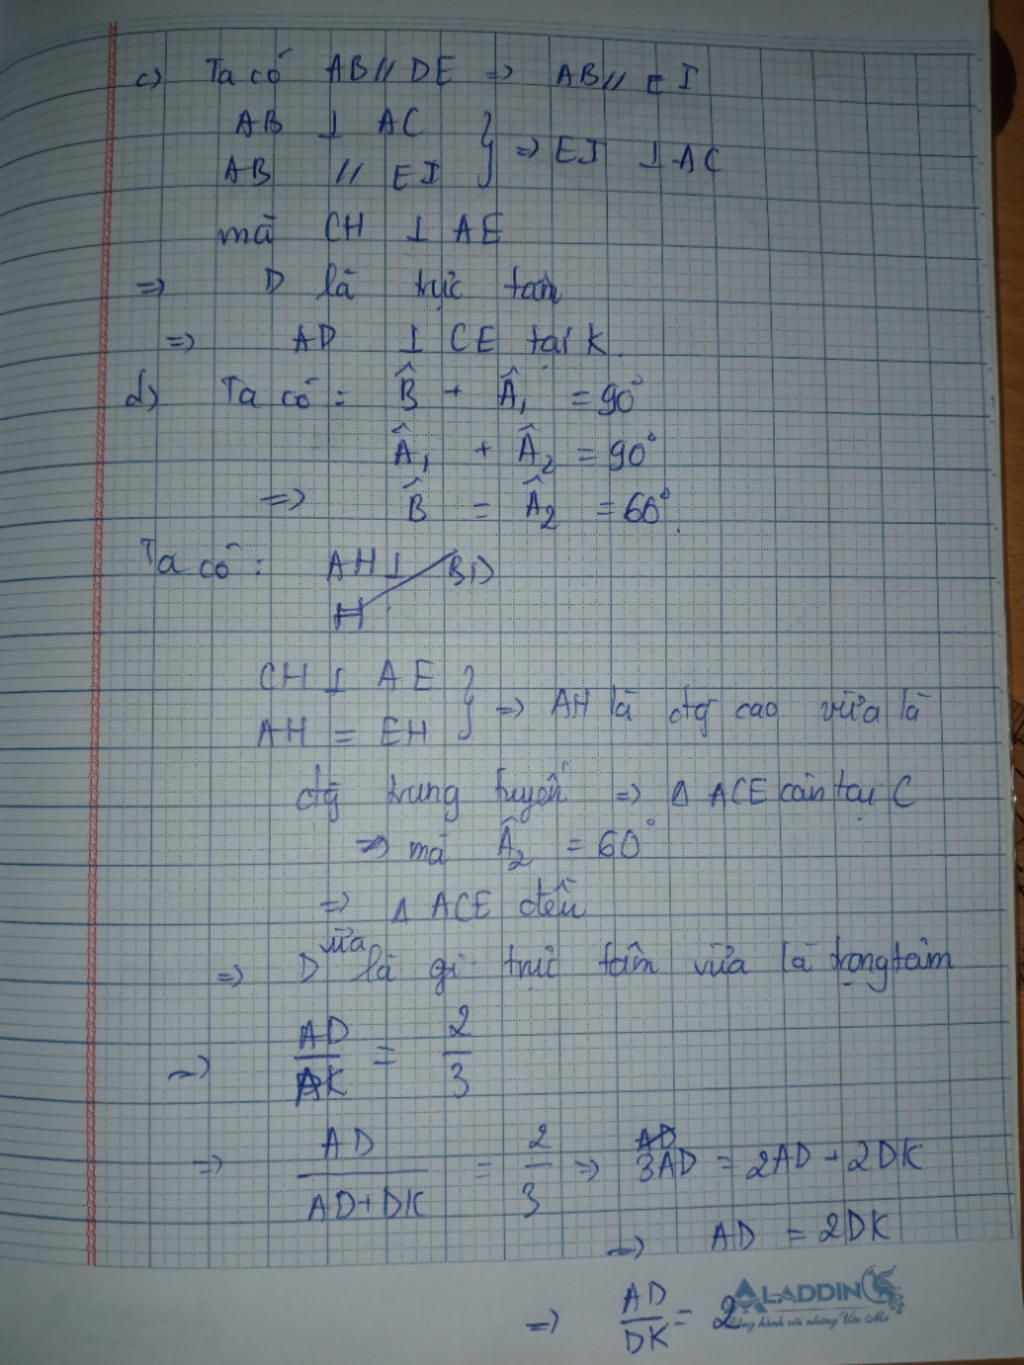 c) Ta có AB // DE => AB // EI
AB ⊥ AC
AB // EI } => EI ⊥ AC
mà CH ⊥ AE
=> D là trực tâm
=> AD ⊥ CE tại K.
d) Ta có: B̂ + Â₁ = 90°
Â₁ + Â₂ = 90°
=> B̂ = Â₂ = 60°.
Ta có: AH ⊥ BD
H
CH ⊥ AE
AH = EH } => AH là đg cao vừa là
đg trung tuyến => Δ ACE cân tại C
=> mà Â₂ = 60°
=> Δ ACE đều
=> D vừa là gi trực tâm vừa là trọng tâm
=> AD/AK = 2/3
=> AD/(AD+DK) = 2/3 => 3AD = 2AD + 2DK
=> AD = 2DK
=> AD/DK = 2
ALADDIN